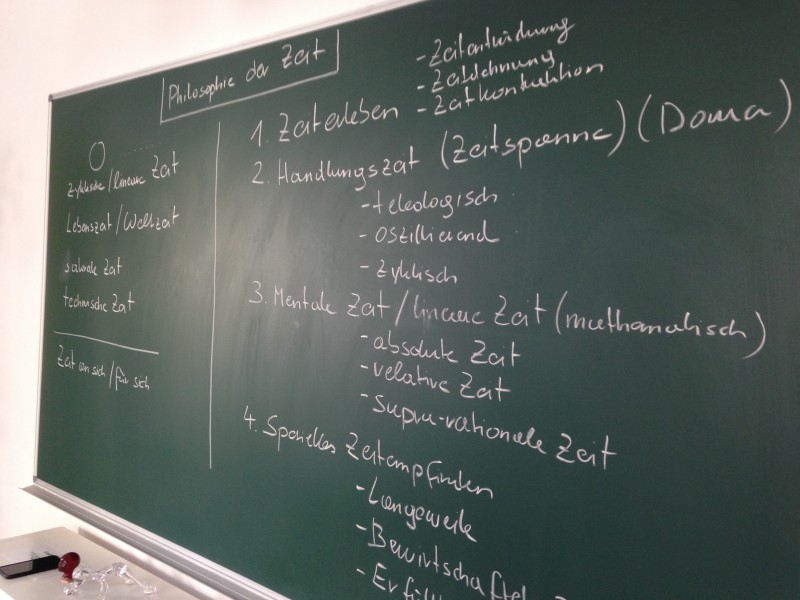 Philosophie der Zeit
zyklische/lineare Zeit
Lebenszeit/Weltzeit
sakrale Zeit
technische Zeit
Zeit an sich/für sich
- Zeitdehnung
1. Zeiterleben
2. Handlungszeit (Zeitspanne)
- teleologisch
- oszillierend
- zyklisch
3. Mentale Zeit/lineare Zeit (mathematisch)
- absolute Zeit
- relative Zeit
- supra-rationale Zeit
4. Spezielles Zeitempfinden
- Langeweile